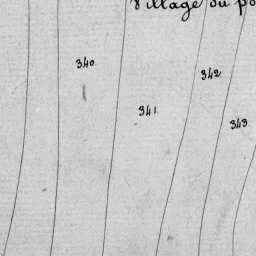 Village du
340
342
341
343